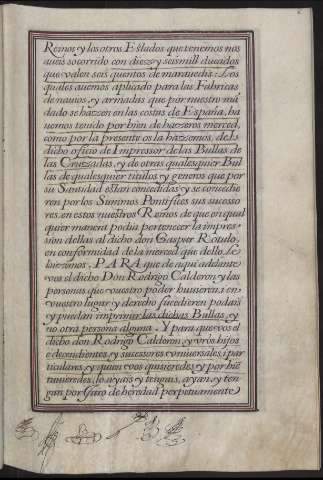 Reinos y los otros Estados que tenemos nos
aueis socorrido con diez y seis mill ducados
que valen seis quentos de marauedis: Los
quales auemos apliado para las Fabricas
de nauios, y armadas que por nuestro mã
dado se hazen en las costas de España, ha
uemos tenido por bien de hazeros merced,
como por la presente os la hazemos, de el
dicho oficio de Impressor de las Bullas de
las Cruzadas, y de otras qualesquier Bul
las de qualesquier titulos y generos que por
su Santidad estan concedidas y se concedie
ren por los Summos Pontifices sus sucesso
res, en estos nuestros Reinos de que en qual
quier manera podia pertenecer la impres
sion dellas al dicho don Gaspar Rotulo,
en conformidad de la merced que dello le
hizimos, PARA que de aqui adelante
vos el dicho Don Rodrigo Calderon y las
personas que vuestro poder huuieren, i en
vuestro lugar y derecho sucedieren podais
y puedan imprimir las dichas Bullas, y
no otra persona alguna. Y para que vos el
dicho don Rodrigo Calderon, y vr̃os hijos
e decendientes, y sucessores vniuersales, i par
ticulares, y quien vos quisieredes y por biẽ
tuuieredes, lo ayais y tengais, ayan, y ten
gan por Juro de heredad perpetuamente